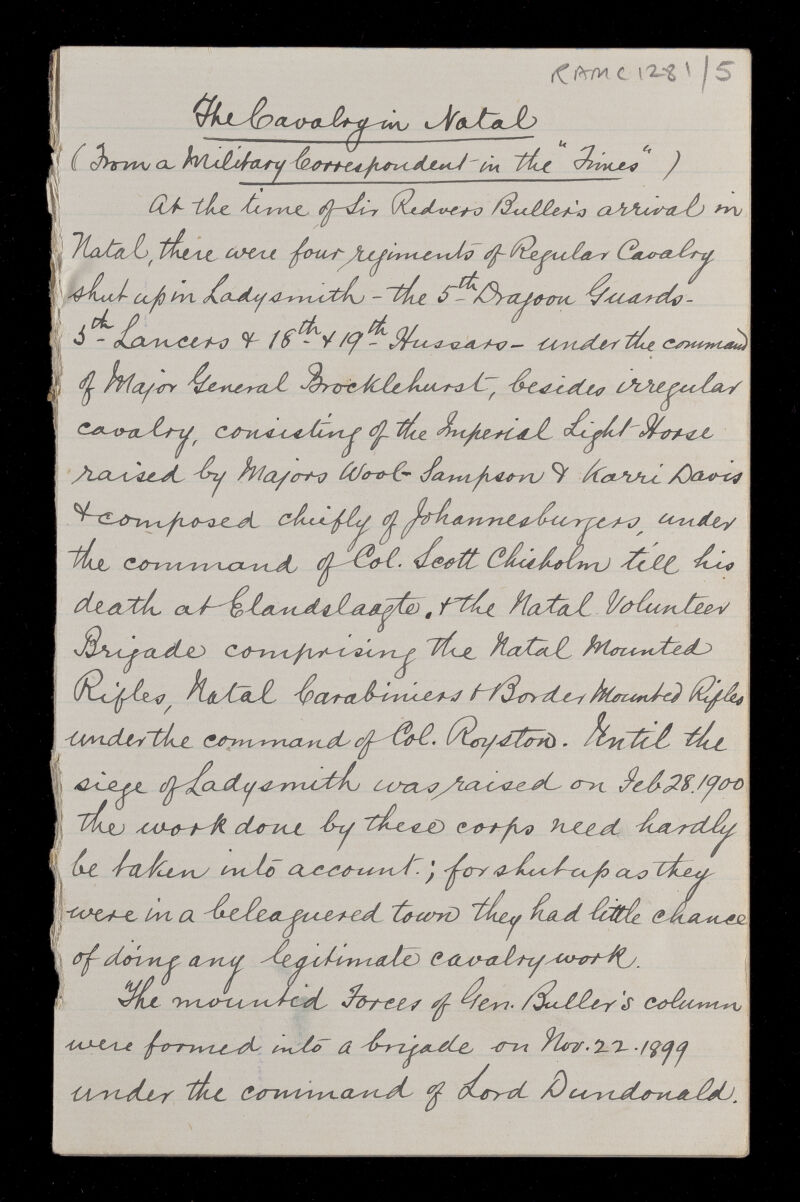 RAMC 1281/5
The Cavalry in Natal
(From a Military Correspondent in the "Times")
At the time of Sir Redvers Buller's arrival in
Natal, there were four regiments of Regular Cavalry
shut up in Ladysmith - the 5th Dragoon Guards -
5th Lancers & 18th & 19th Hussars - under the command
of Major General Brocklehurst, besides irregular
cavalry, consisting of the Imperial Light Horse
raised by Majors Wool-Sampson & Karri Davis
& composed chiefly of Johannesburgers, under
the command of Col. Scott Chisholm till his
death at Elandslaagte. & the Natal Volunteer
Brigade comprising the Natal Mounted
Rifles, Natal Carabiniers & Border Mounted Rifles
under the command of Col. Royston. Until the
siege of Ladysmith was raised on Feb 28. 1900
the work done by these corps need hardly
be taken into account.; for shut up as they
were in a beleaguered town they had little chance
of doing any legitimate cavalry work.
"The mounted Forces of Gen. Buller's column
were formed into a brigade on Nov. 22. 1899
under the command of Lord Dundonald.